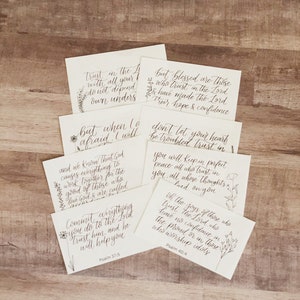 trust in the Lord
with all your
do not depend
own unders
But blessed are those
who trust in the Lord
& have made the Lord
their hope & confidence
but when I
afraid I will
don't let your heart
be troubled trust in
and we know that God
causes everything to
work together for the
good of those who
God & are called
you will keep in perfect
peace all who trust in
you, all whose thoughts
fixed on you
Commit everything
you do to the Lord
Trust him, and he
will help you.
Psalm 37:5
Oh the joy of those who
trust the Lord who
have no confidence in
the proud or in those
who worship idols
Psalm 40:4